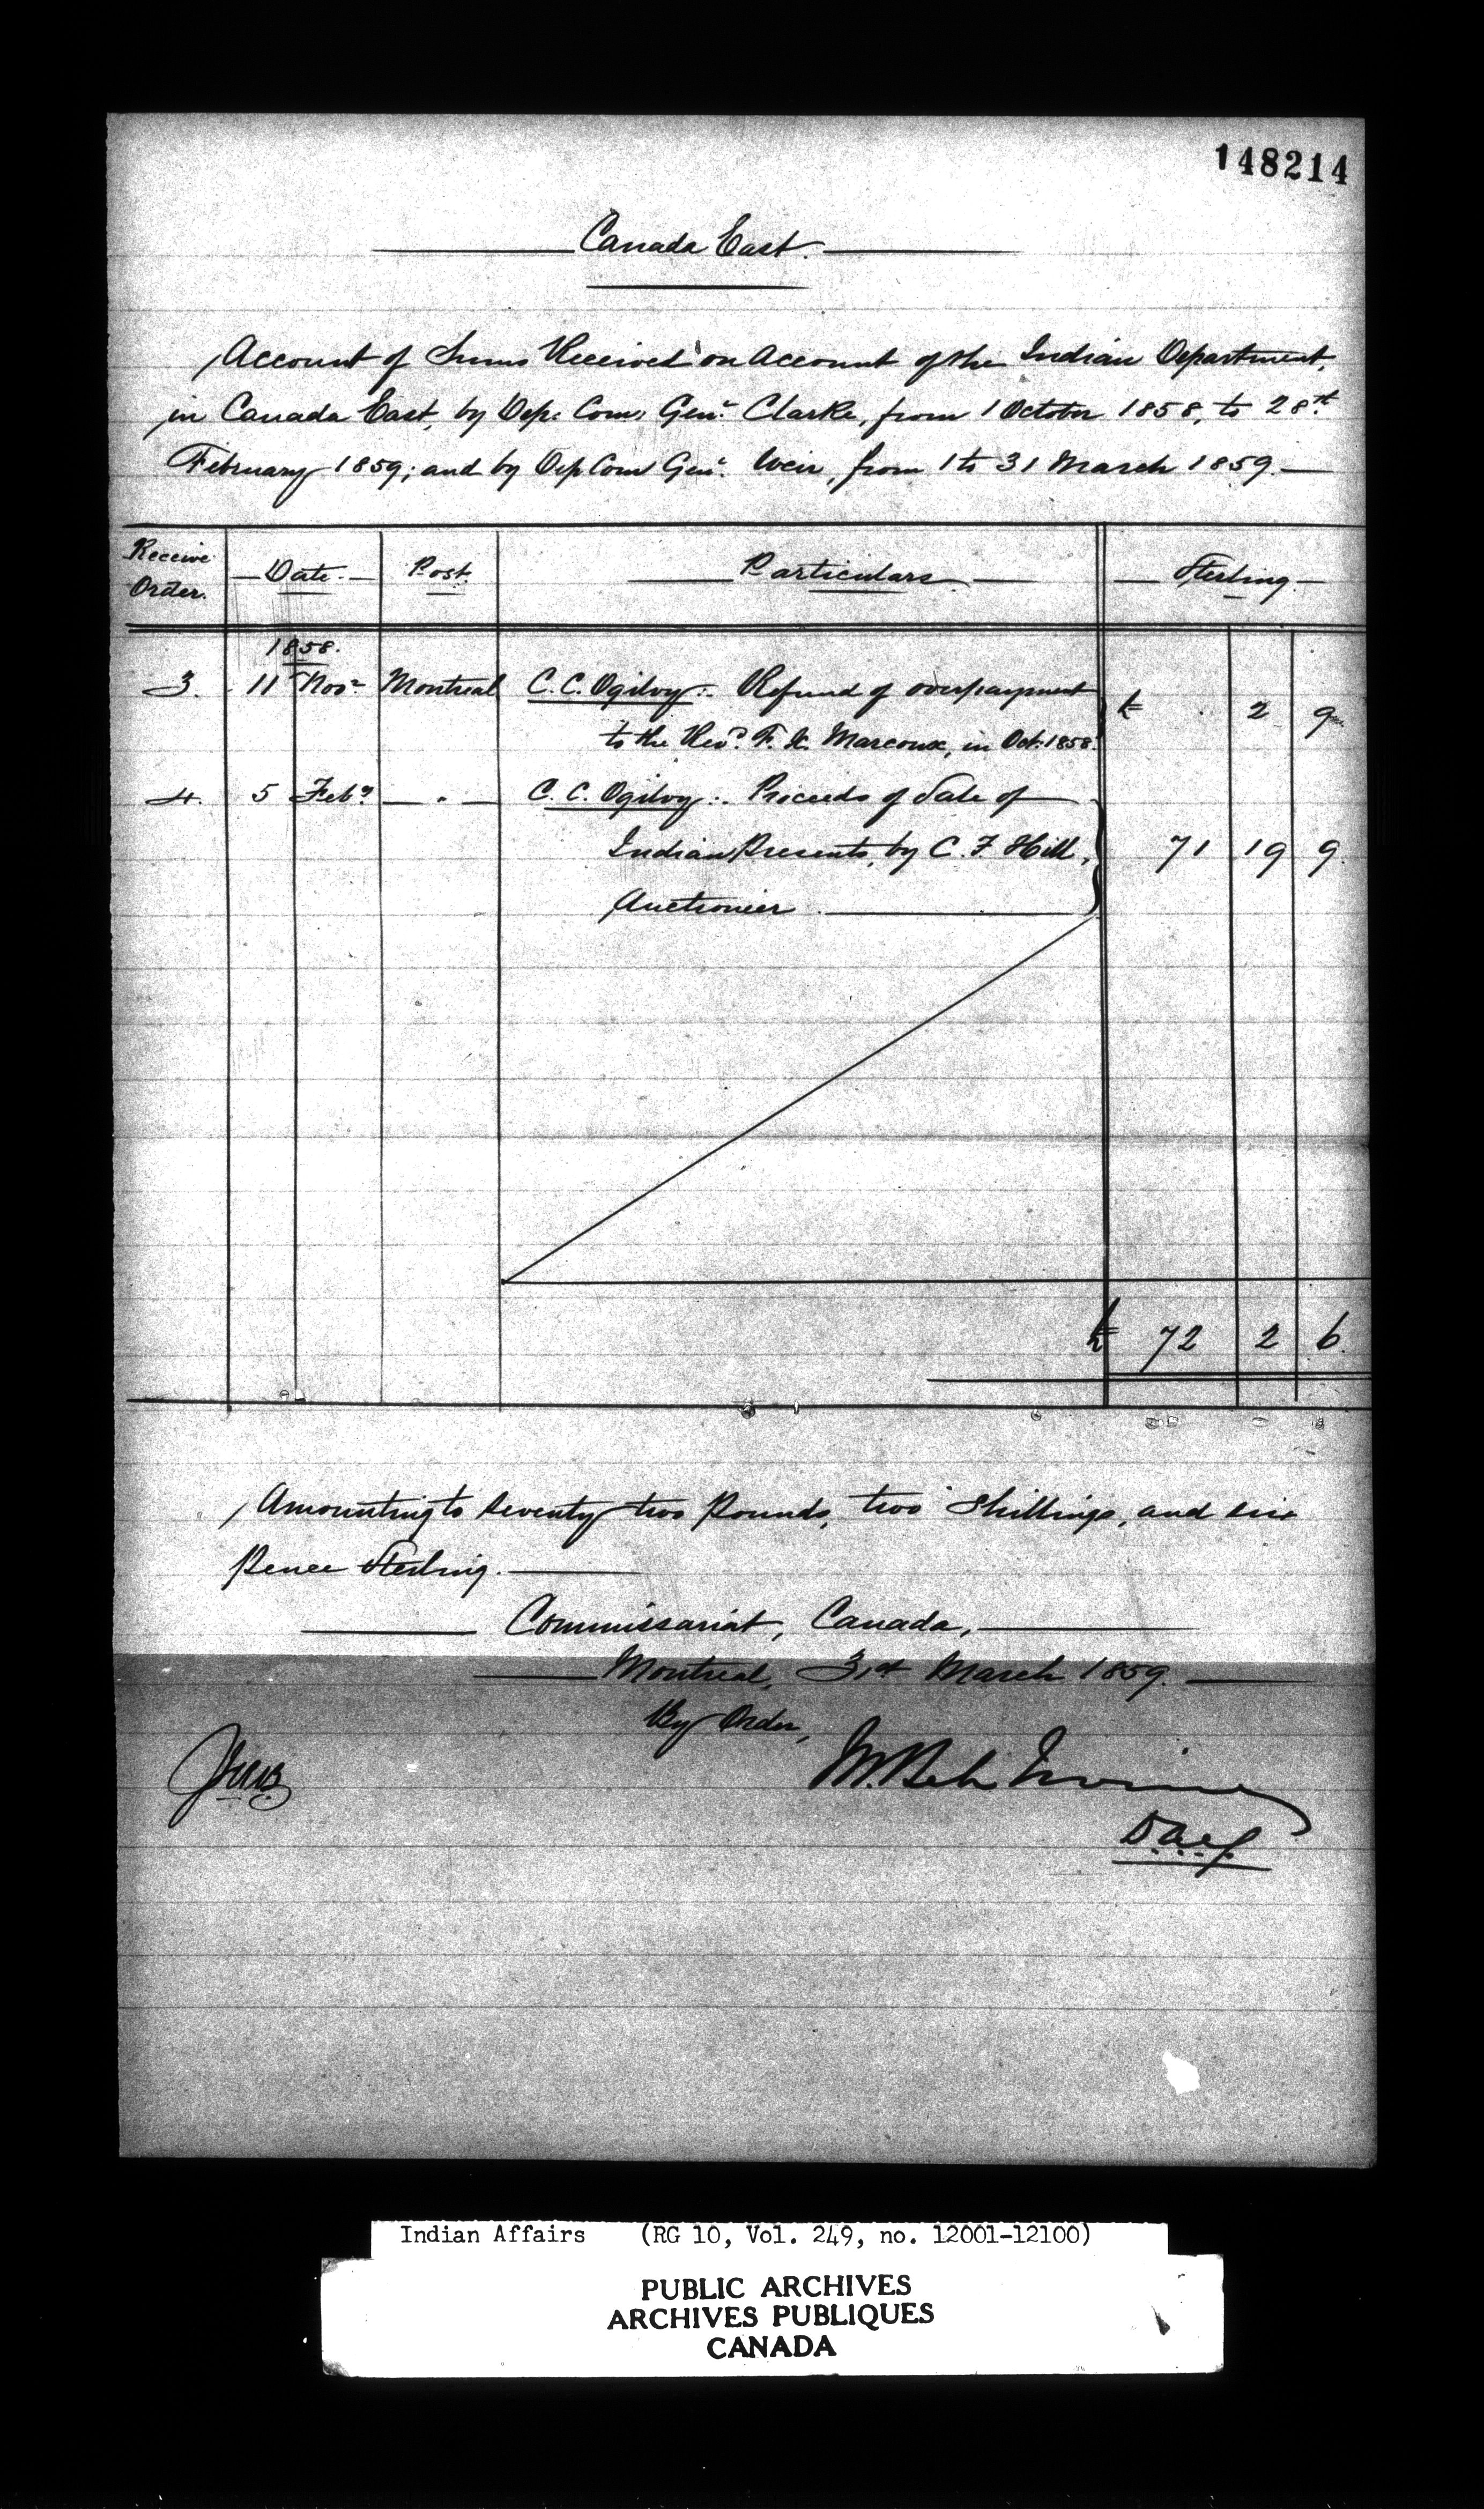 148214
Canada East.
Account of Sums Received on Account of the Indian Department,
in Canada East, by Dep: Com: Genl. Clarke, from 1 October 1858, to 28th
February 1859; and by Dep Com Genl. Weir, from 1 to 31 March 1859.
Receive Order. Date. Post. Particulars Sterling.
1858.
3. 11 Novr Montreal C. C. Ogilvy:. Refund of overpayment
to the Revd. F. X. Marcoux, in Oct. 1858. £ 2 9
4. 5 Feby — " — C. C. Ogilvy:. Proceeds of Sale of
Indian Presents, by C. F. Hill, 71 19 9
Auctionier
£ 72 2 6
Amounting to Seventy two Pounds, two Shillings, and six
Pence Sterling.
Commissariat, Canada,
Montreal, 31st March 1859.
By Order,
Irvine
D.A.C.G.
Indian Affairs (RG 10, Vol. 249, no. 12001-12100)
PUBLIC ARCHIVES
ARCHIVES PUBLIQUES
CANADA